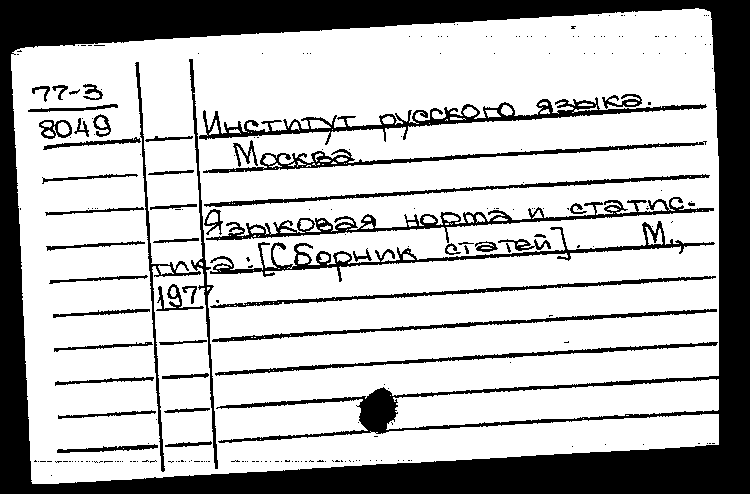 77-3
8049
Институт русского языка.
Москва.
Языковая норма и статис-
тика: [Сборник статей]. М.,
1977.